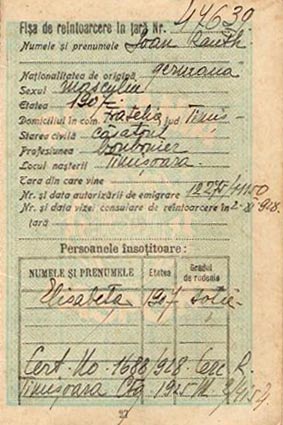 Fișa de reintoarcere în țară Nr. 44630
Numele și prenumele Ioan Rauth
Naționalitatea de origină germana
Sexul masculin
Etatea 1907
Domiciliul în com. Fratelia jud. Timiș-
Starea civilă căsătorit
Profesiunea bonbonier
Locul nașterii Timișoara.
Țara din care vine
Nr. și data autorizării de emigrare
Nr. și data vizei consulare de reîntoarcere în 2-XI 928.
țară
Persoanele însoțitoare:
NUMELE ȘI PRENUMELE Etatea Gradul de rudenie
Elisabeta 1907 soție
Cert. No. 1688/928. Cerc. R.
Timișoara Ctg. 1925 M.